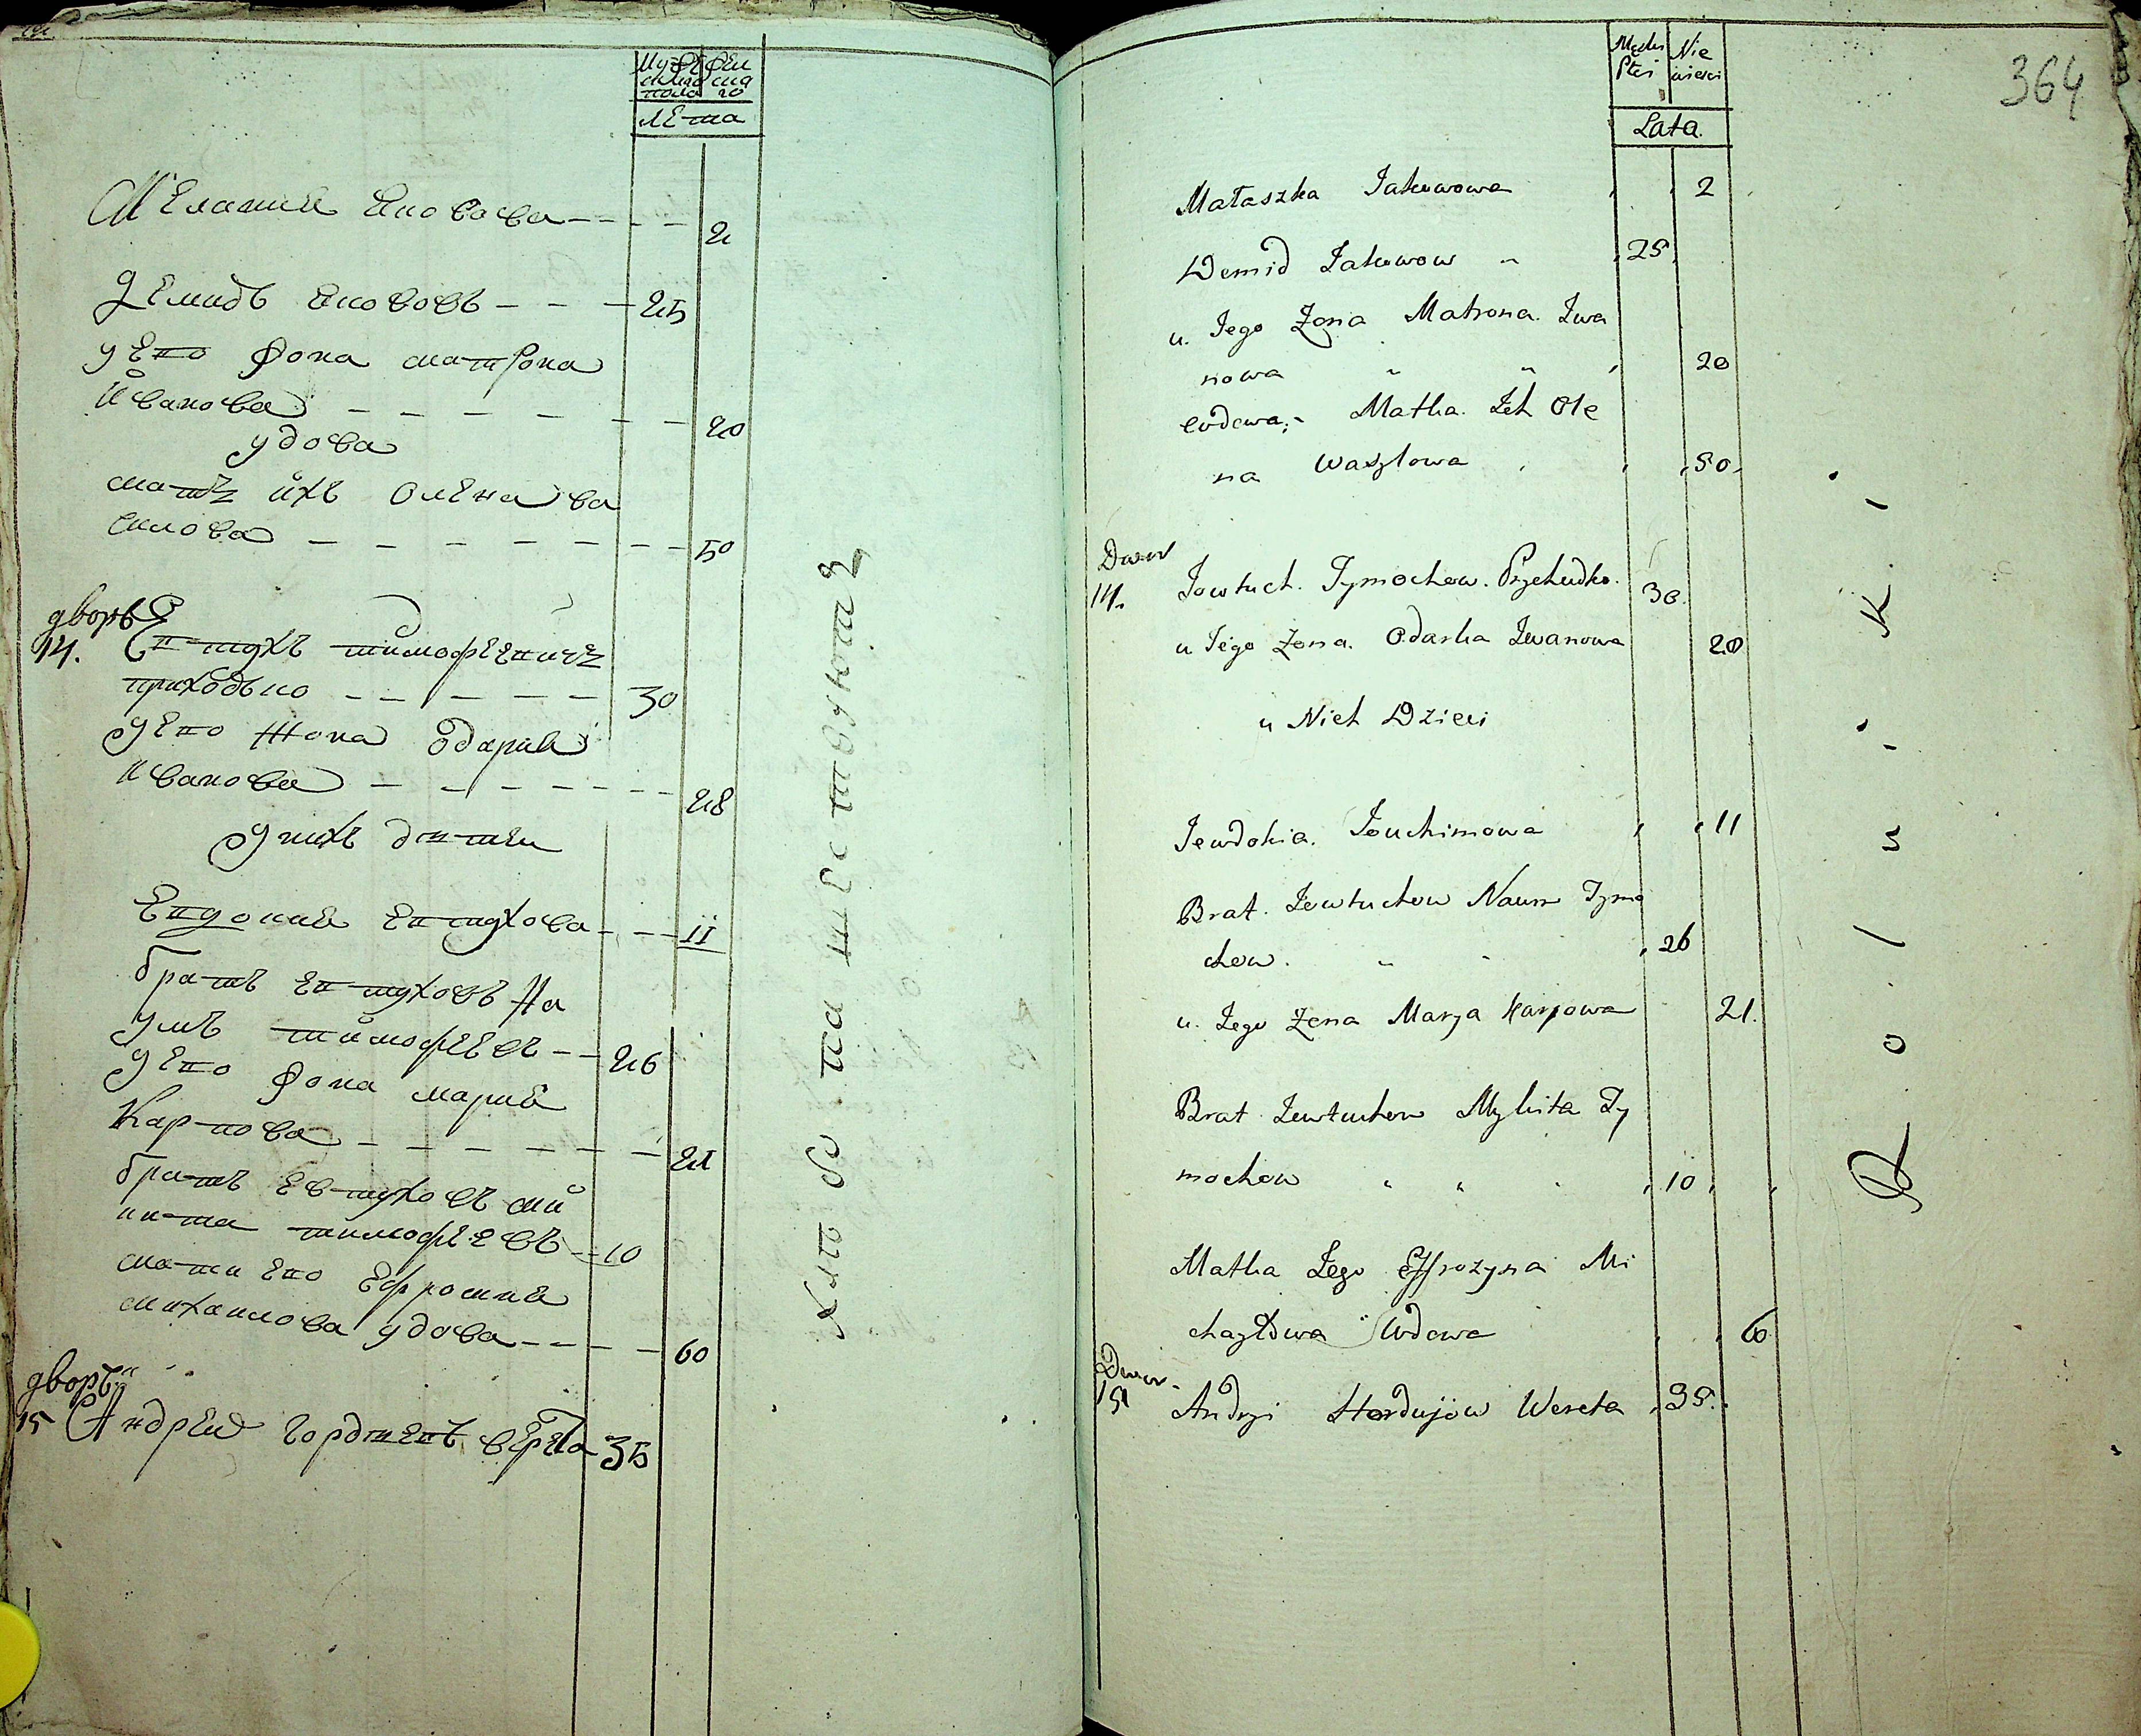 Мужеска пола
Женска го
лета
Мелания Яковова - - - - 2
Демидъ Якововъ - - - 25
у его жона матрона
Иванова - - - - - - - 20
удова
мать ихъ Олена Ва
силова - - - - - - - - 50
дворъ
14.
Евтухъ тимофеевичъ
приходько - - - - - 30
у его жона одария
Иванова - - - - - - - 28
у нихъ дети
Евдокия Евтухова - - - 11
братъ Евтуховъ На
умъ тимофеевъ - - 26
у его жона мария
Карпова - - - - - - - 21
братъ Евтуховъ ми
кита тимофеевъ - - 10
мати его Ефросиния
михаилова удова - - - - 60
дворъ
15 Андрей Гордеевъ верета 35
364
Męskı Płci
Nie wiesci
Lata.
Małaszka Jakowowa 2
Demid Jakowow 25
u. Jego Żona Matrona Iwa
nowa 20
wdowa; Matka. Ich Ole
na Waszlowa 50.
Dwor
14. Jowtuch. Tymochow. Przchudko. 30.
u Jego Zona. Odarka Iwanowa 28
u Nich Dzieci
Jewdokia. Jouchimowa 11
Brat. Jewtuchow Naum Tymo
chow. 26
u. Jego Zona Marya Karpowa 21.
Brat Jewtuchow Mykita Ty
mochow 10
Matka Jego Effrozyna Mi
chayłowa Wdowa 60
Dwor
15 Andrzi Hordujow Wereta 35.